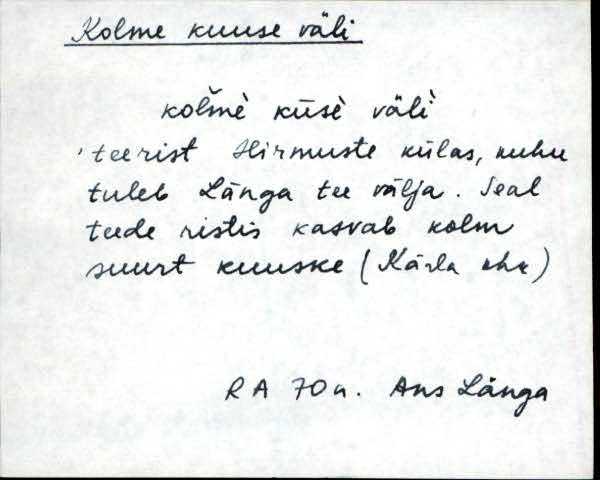 Kolme kuuse väli
kolmè kūsè väli
'teerist Hirmuste külas, kuhu
tuleb Länga tee välja. Seal
teede ristis kasvab kolm
suurt kuuske (Kärla khk)
R A 70a. Ans Länga